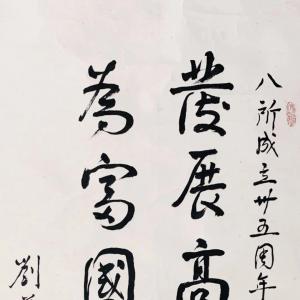 八所成立卅五周年
發展高
為富國
劉